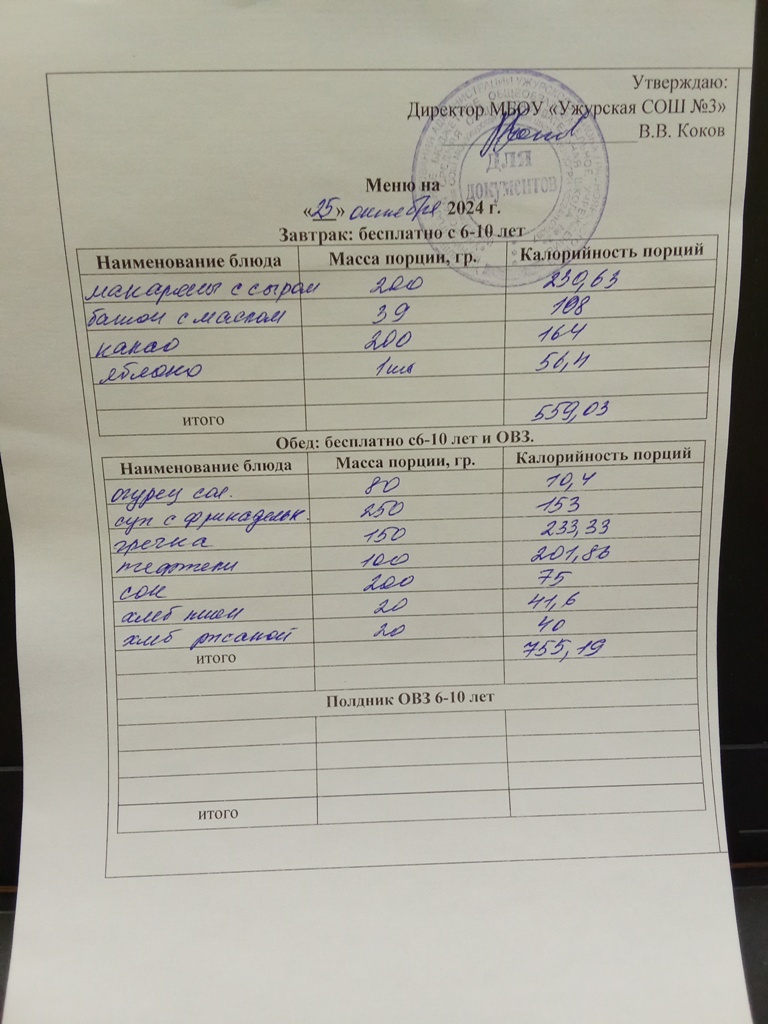 Утверждаю:
Директор МБОУ «Ужурская СОШ №3»
В.В. Коков
для
документов
Меню на
«25» октября 2024 г.
Завтрак: бесплатно с 6-10 лет
Наименование блюда Масса порции, гр. Калорийность порций
макароны с сыром 200 230,63
батон с маслом 39 108
какао 200 164
яблоко 1шт 56,4
итого 559,03
Обед: бесплатно с6-10 лет и ОВЗ.
Наименование блюда Масса порции, гр. Калорийность порций
огурец сол. 80 10,4
суп с фрикадельк. 250 153
гречка 150 233,33
тефтели 100 201,86
сок 200 75
хлеб пшен 20 41,6
хлеб ржаной 20 40
итого 755,19
Полдник ОВЗ 6-10 лет
итого